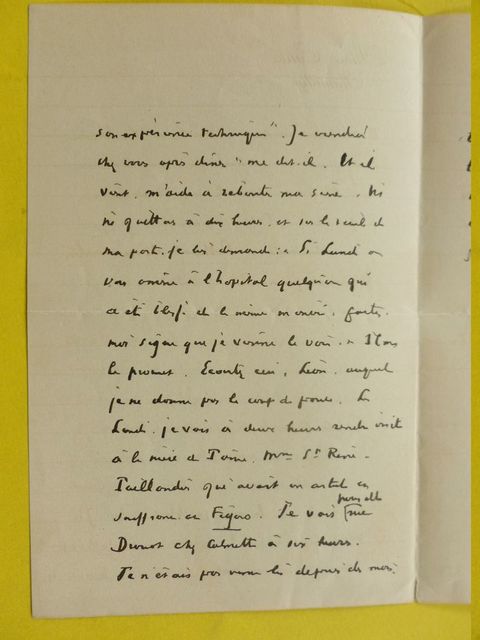 son expérience technique". Je viendrai
chez vous après dîner" me dit-il. Et il
vint, m'aida a rebouter ma scène. Il
me quitta à dix heures, et sur le seuil de
ma porte je lui demande: « Si Lundi on
vous amène à l'hopital quelqu'un qui
a été blessé de la même manière, faites
moi signe que je vienne le voir. » Il me
le promet. Ecoutez ceci, Léon, auquel
je ne donne pas le coup de pouce. Le
Lundi, je vais à deux heures rendre visite
à la nièce de Taine, Mme St René-
Taillandier qui avait un article en
souffrance au Figaro. Je vais pour elle rue
Drouot chez Calmette à six heures.
Je n'étais pas venu là depuis des mois.